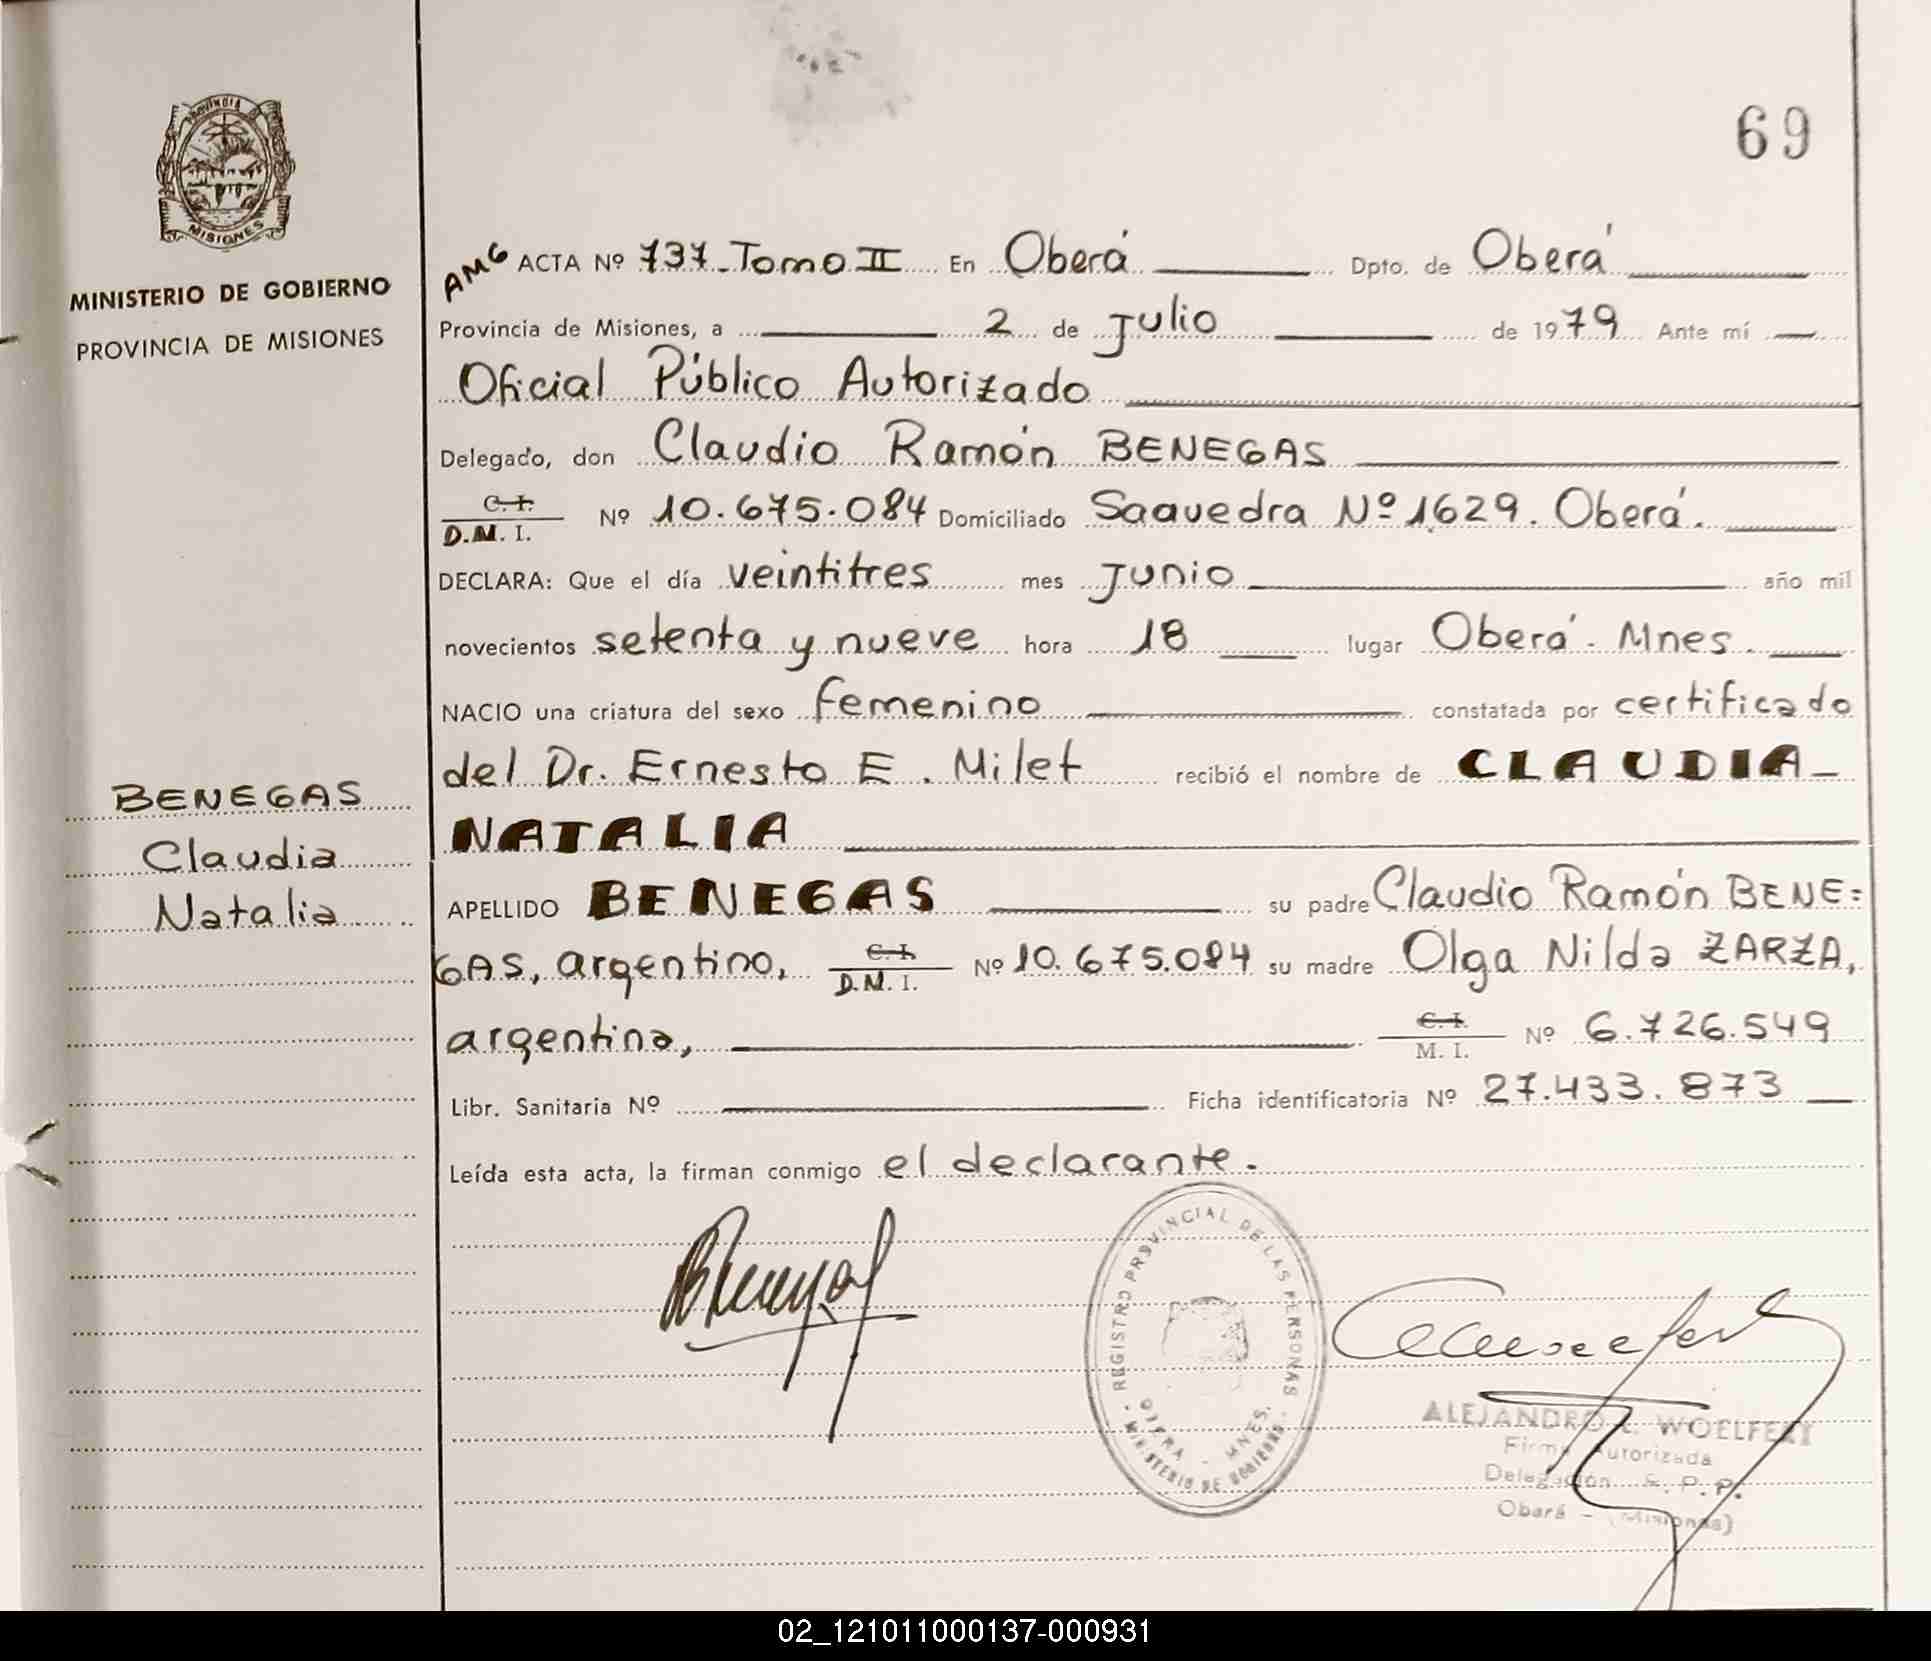 PROVINCIA
MISIONES
MINISTERIO DE GOBIERNO
PROVINCIA DE MISIONES
BENEGAS
Claudia
Natalia
69
AMG ACTA Nº 737 - Tomo II En Oberá Dpto. de Oberá
Provincia de Misiones, a 2 de Julio de 1979 Ante mí
Oficial Público Autorizado
Delegado, don Claudio Ramón BENEGAS
C. I.
D.M. I. Nº 10.675.084 Domiciliado Saavedra Nº 1629. Oberá.
DECLARA: Que el día veintitres mes Junio año mil
novecientos setenta y nueve hora 18 lugar Oberá. Mnes.
NACIO una criatura del sexo femenino constatada por certificado
del Dr. Ernesto E. Milet recibió el nombre de CLAUDIA
NATALIA
APELLIDO BENEGAS su padre Claudio Ramón BENE=
GAS, argentino, C. I. D.M. I. Nº 10.675.084 su madre Olga Nilda ZARZA,
argentina, C. I. M. I. Nº 6.726.549
Libr. Sanitaria Nº Ficha identificatoria Nº 27.433.873
Leída esta acta, la firman conmigo el declarante.
REGISTRO PROVINCIAL DE LAS PERSONAS
OBERA - MNES.
- MINISTERIO DE GOBIERNO -
ALEJANDRO L. WOELFERT
Firma Autorizada
Delegación R. P. P.
Oberá - (Misiones)
02_121011000137-000931